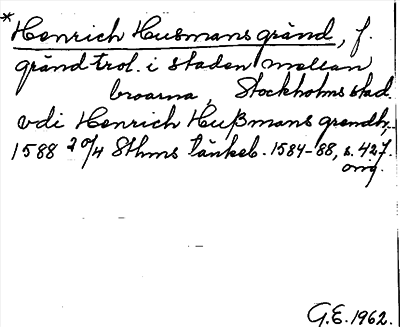 *Henrich Husmans gränd, f.
gränd trol. i staden mellan
broarna, Stockholms stad
vdi Henrich Hußmans grendh,
1588 20/4 Sthms tänkeb. 1584-88, s. 427.
orig.
G.E. 1962.